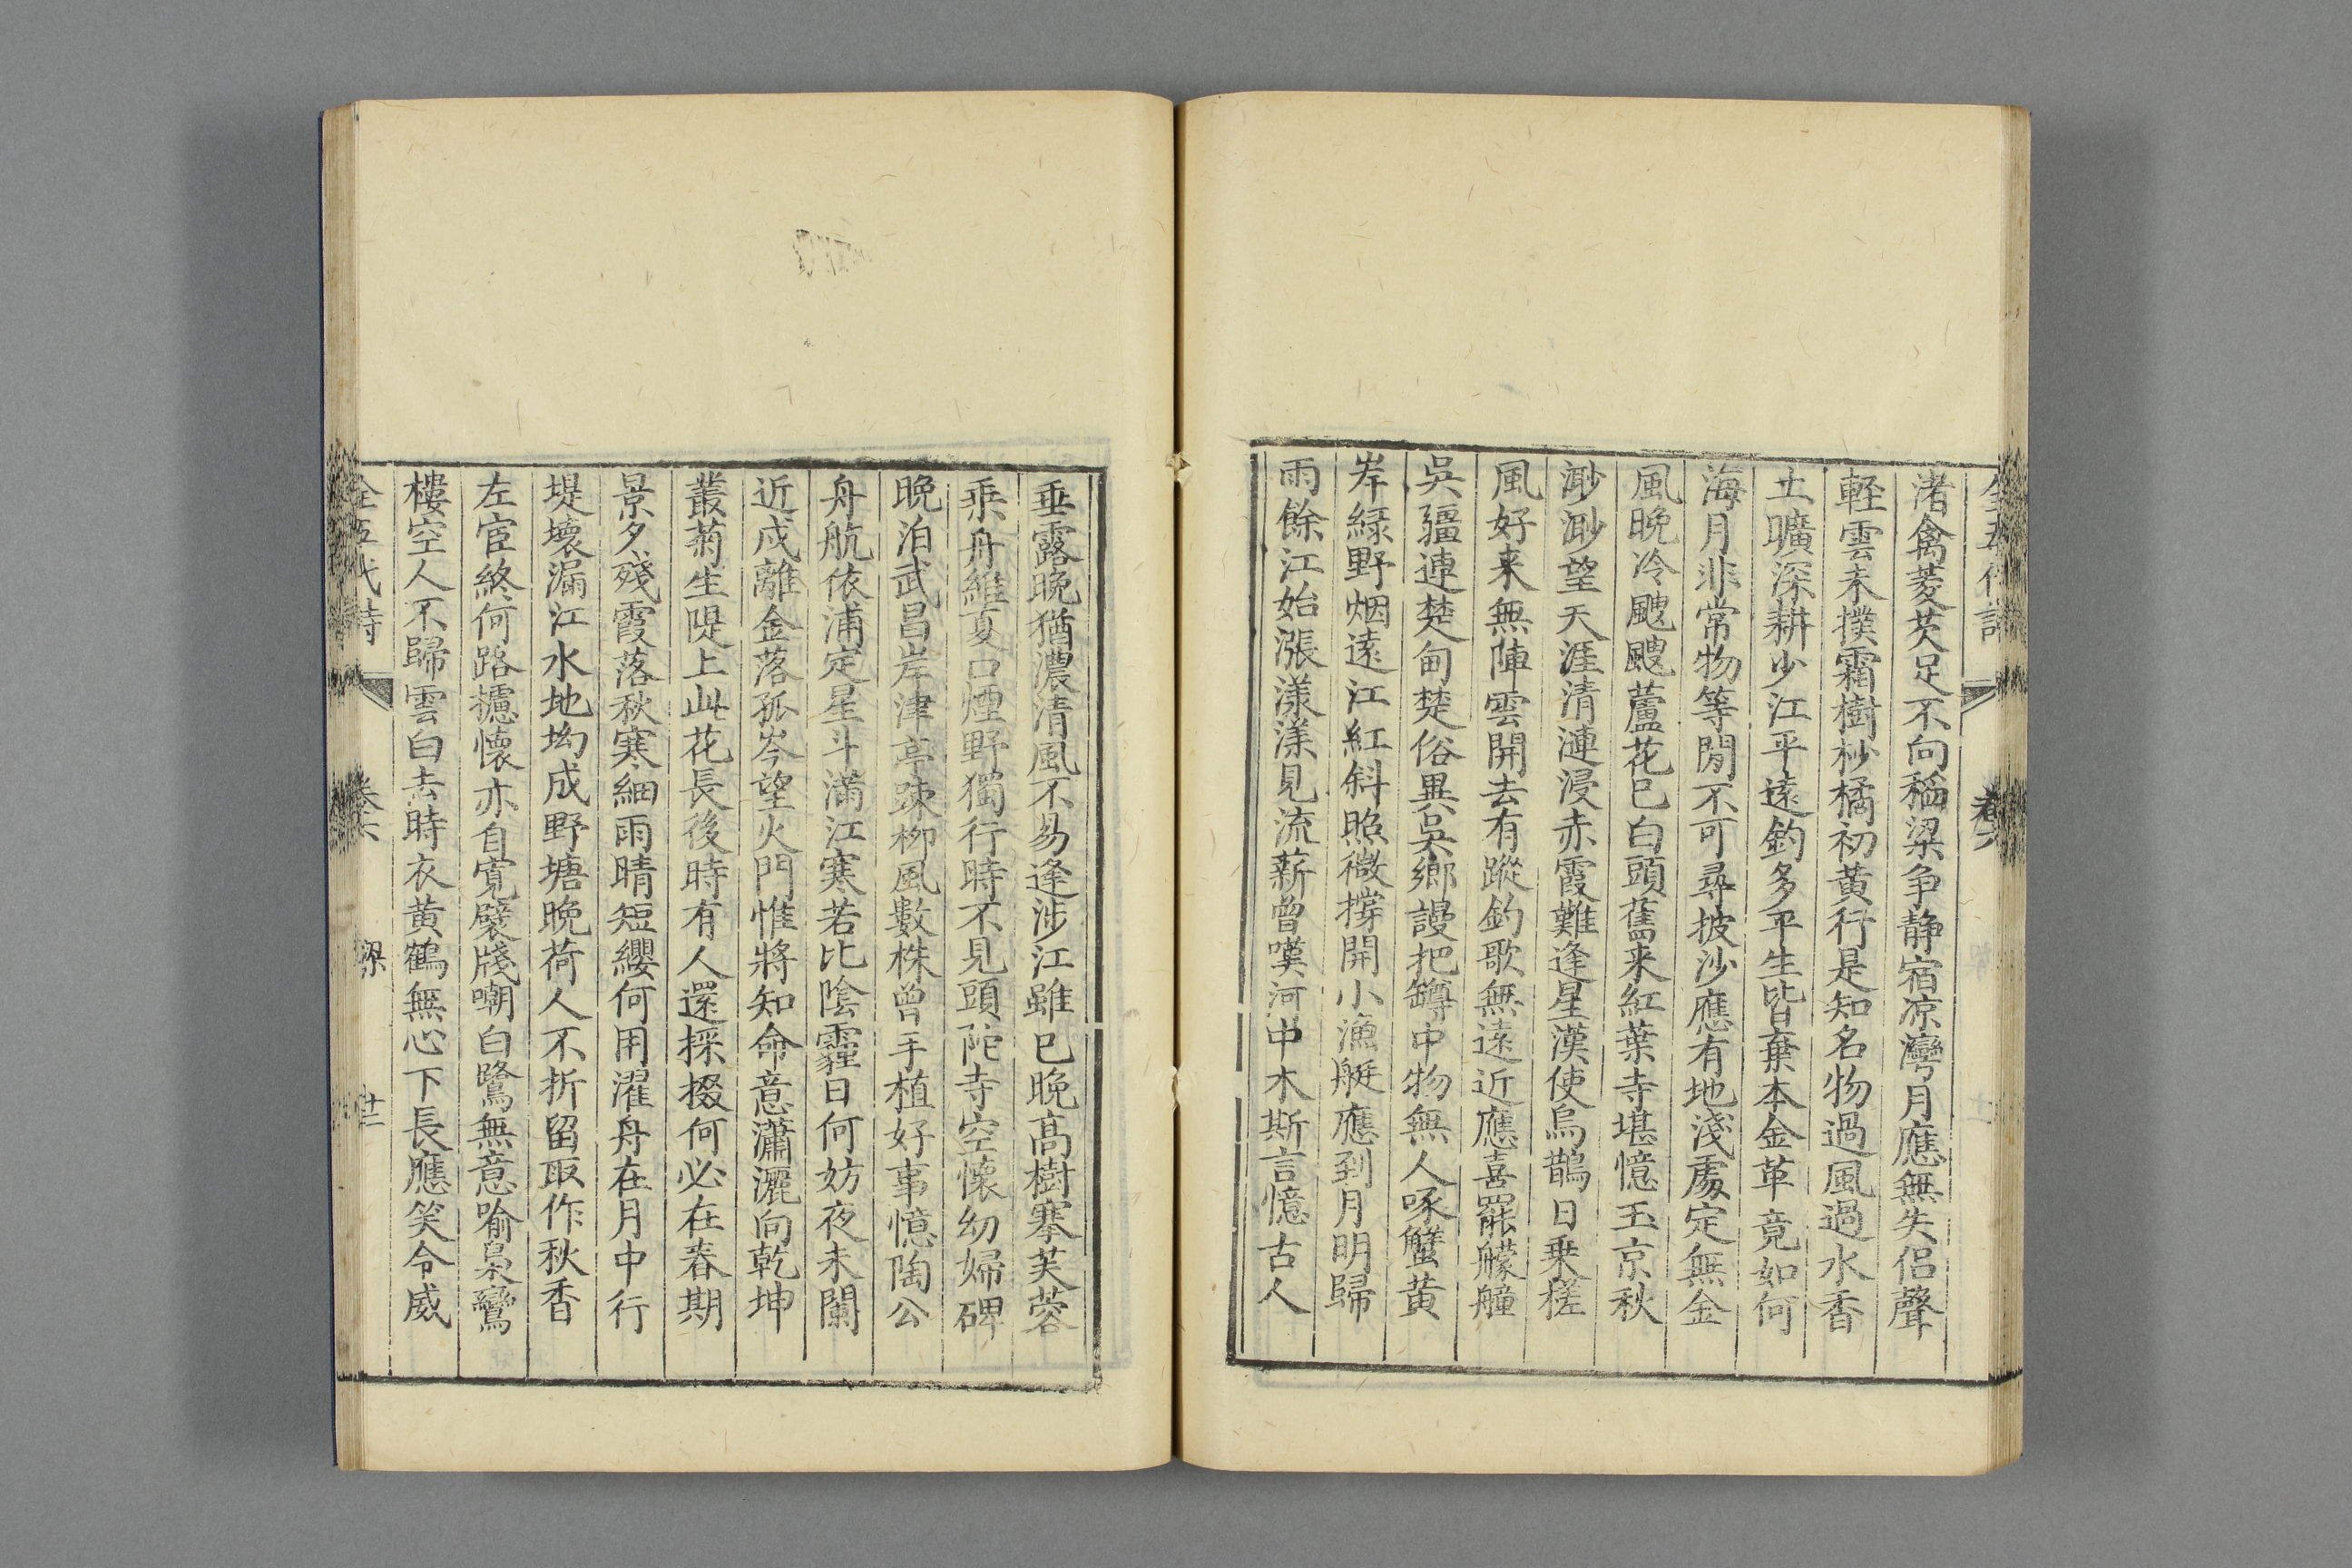 全五代詩 卷六
渚禽菱芡足不向稻粱争静宿凉灣月應無失侣聲
輕雲未撲霜樹杪橘初黄行是知名物過風過水香
土曠深耕少江平遠釣多平生皆棄本金革竟如何
海月非常物等閒不可尋披沙應有地淺處定無金
風晩冷颼颼蘆花已白頭舊来紅葉寺堪憶玉京秋
渺渺望天涯清漣浸赤霞難逢星漢使烏鵲日乗槎
風好来無陣雲開去有蹤釣歌無遠近應喜罷艨艟
吳疆連楚甸楚俗異吳鄉謾把罇中物無人啄蟹黄
岸緑野烟遠江紅斜照微撐開小漁艇應到月明歸
雨餘江始漲漾漾見流薪曾嘆河中木斯言憶古人
垂露晩猶濃清風不易逢涉江雖已晩髙樹搴芙蓉
乘舟維夏口煙野獨行時不見頭陀寺空懷幼婦碑
晩泊武昌岸津亭疎栁風數株曾手植好事憶陶公
舟航依浦定星斗滿江寒若比陰霾日何妨夜未闌
近戍離金落孤岑望火門惟將知命意瀟灑向乾坤
叢菊生隄上此花長後時有人還採掇何必在春期
景夕殘霞落秋寒細雨晴短纓何用濯舟在月中行
堤壞漏江水地坳成野塘晩荷人不折留取作秋香
左宦終何路攄懷亦自寛襞牋嘲白鷺無意喻梟鸞
樓空人不歸雲白去時衣黄鶴無心下長應笑令威
全五代詩 卷六 梁 廿二